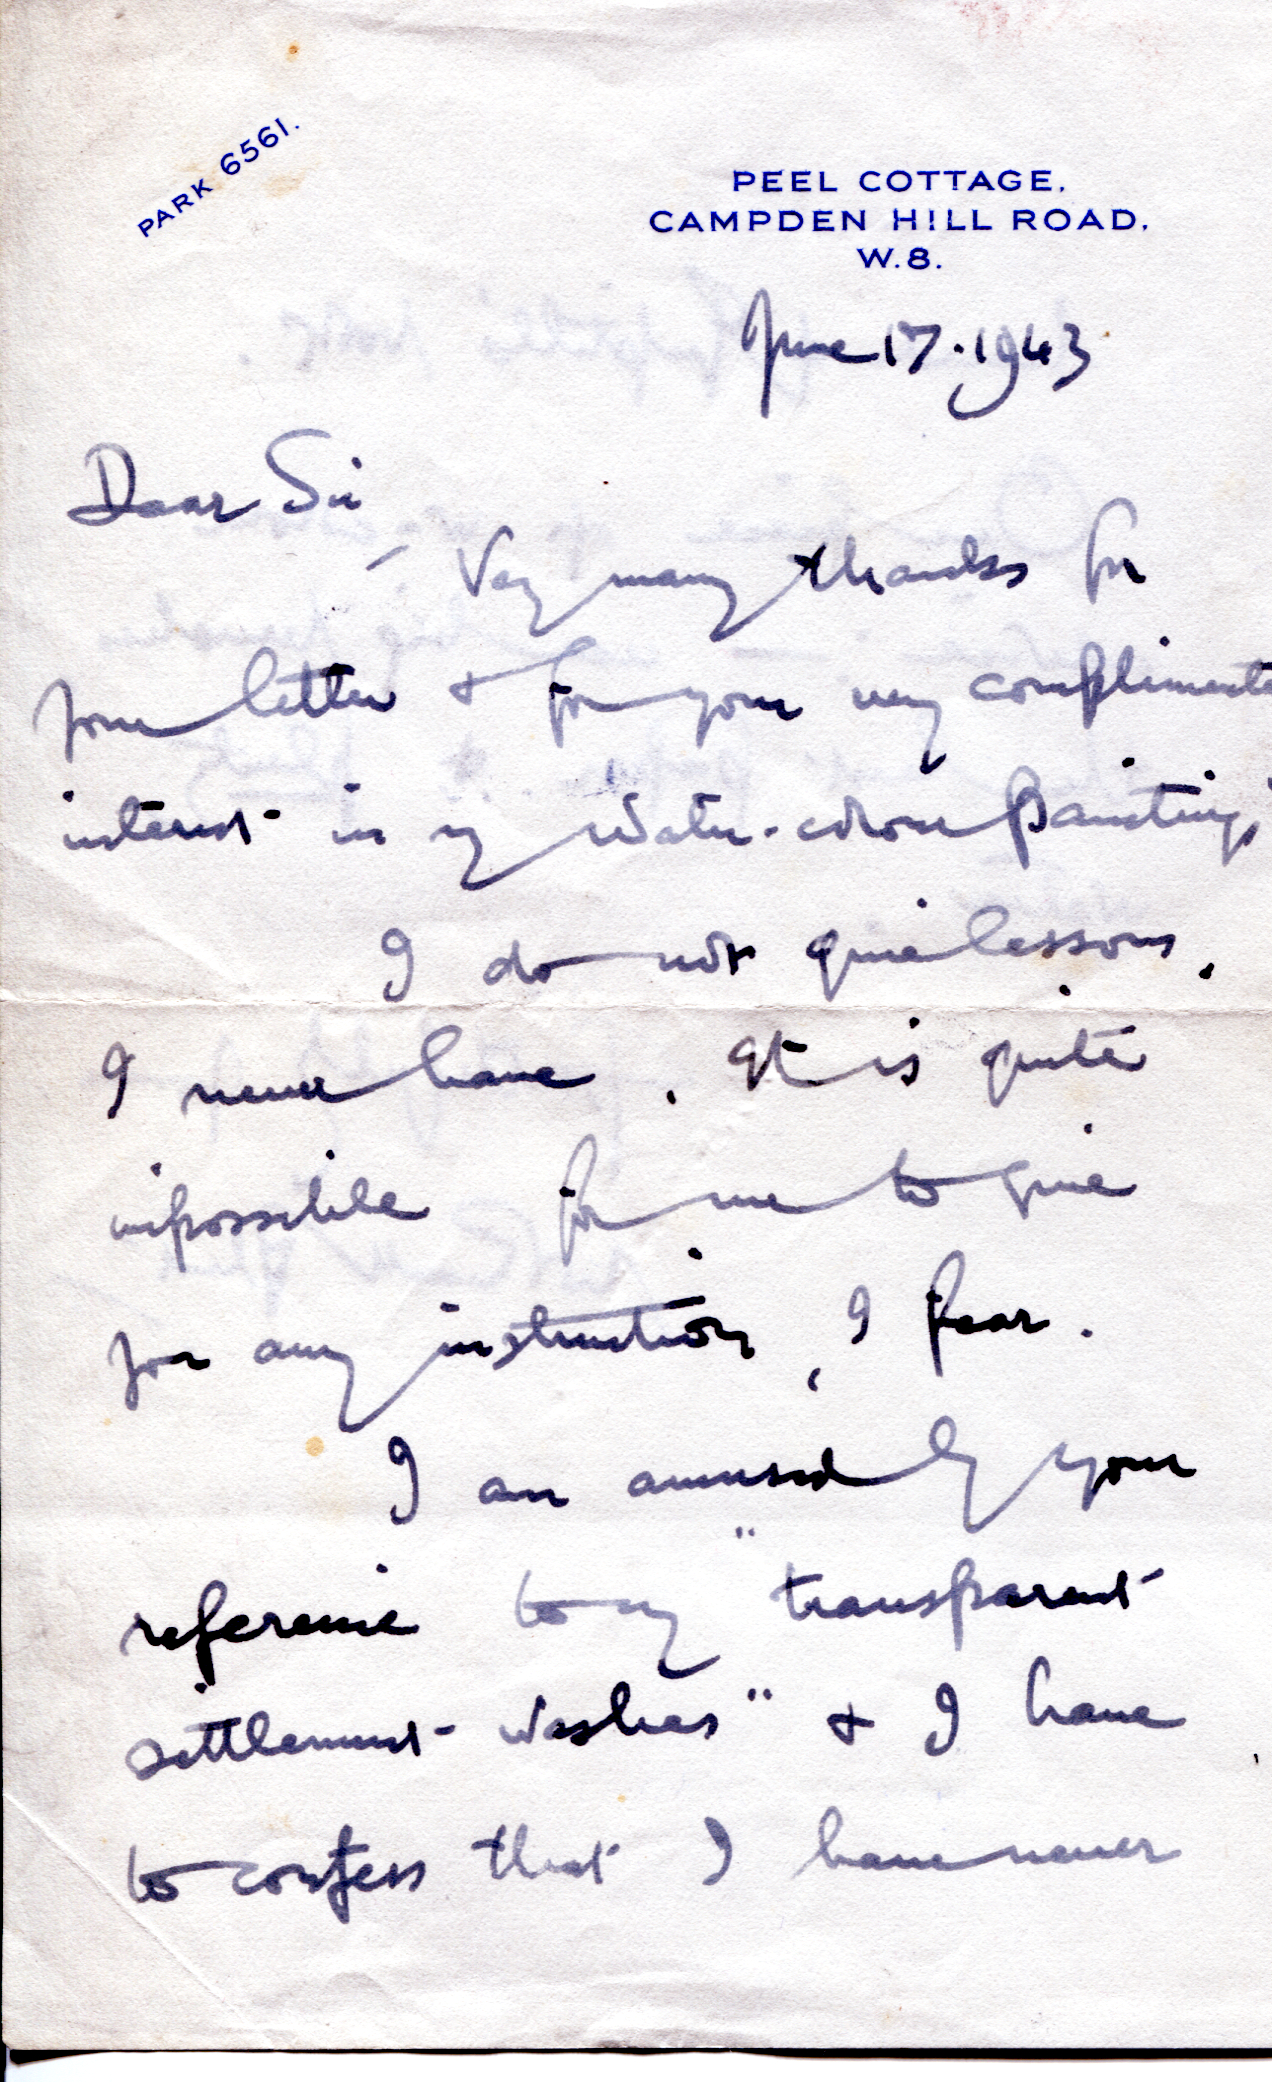 PARK 6561.
PEEL COTTAGE,
CAMPDEN HILL ROAD,
W.8.
June 17. 1943
Dear Sir
Very many thanks for
your letter & for your very compliments
interest in my water-colour paintings
I do not give lessons.
I never have. It is quite
impossible for me to give
you any instruction, I fear.
I am amused by your
reference to my "transparent
settlement washes" & I have
to confess that I have never